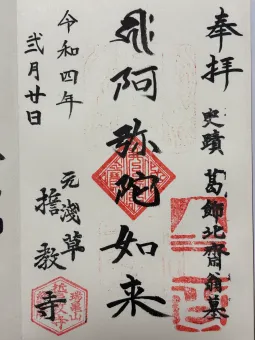 奉拝
史蹟 葛飾北齋翁墓
飛阿弥陀如来
令和四年
弐月廿日
元浅草
誓教寺